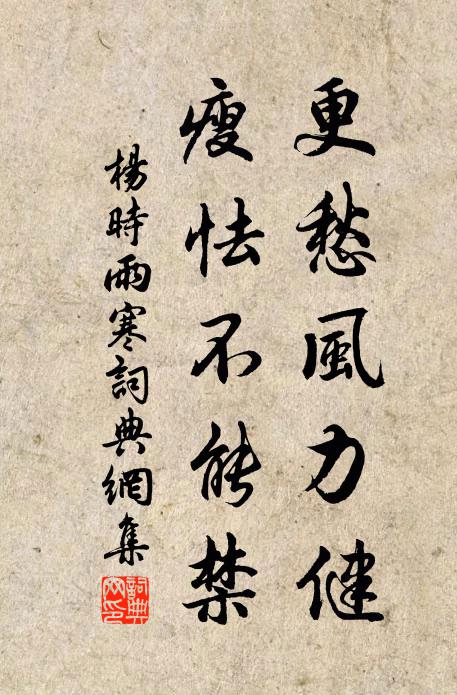 更愁風力健
瘦怯不能禁
楊時雨寒詞典網集
詞典
網印